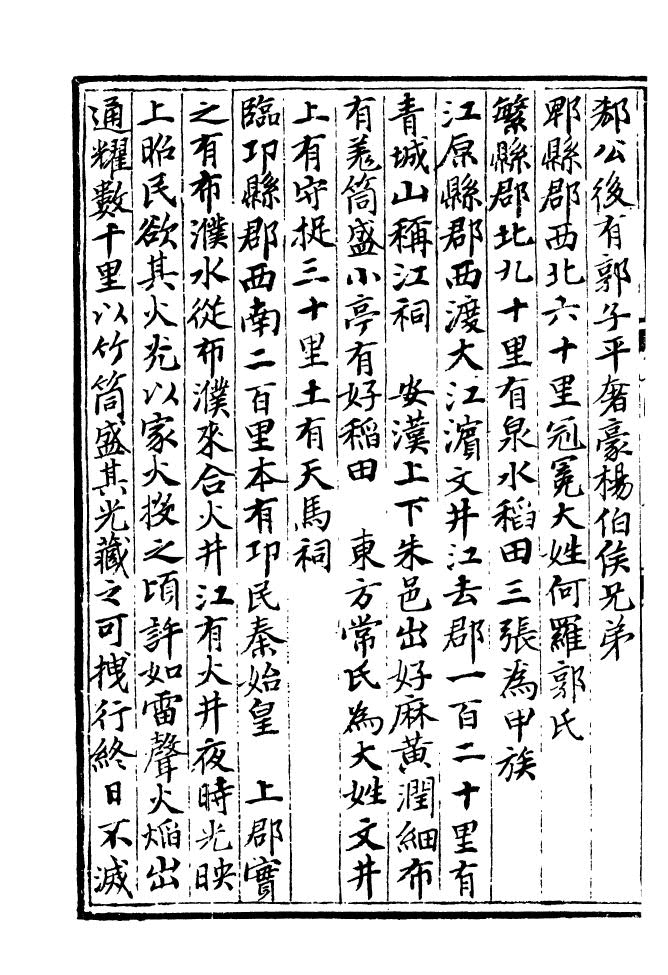 郄公後有郭子平奢豪楊伯侯兄弟
郫縣郡西北六十里冠冕大姓何羅郭氏
繁縣郡北九十里有泉水稻田三張為甲族
江原縣郡西渡大江濵文井江去郡一百二十里有
青城山稱江祠　安漢上下朱邑出好麻黃潤細布
有羌筒盛小亭有好稻田　東方常氏為大姓文井
上有守捉三十里土有天馬祠
臨邛縣郡西南二百里本有邛民秦始皇　上郡實
之有布濮水從布濮來合火井江有火井夜時光映
上昭民欲其火光以家火投之頃許如雷聲火焰出
通耀數千里以竹筒盛其光藏之可拽行終日不滅